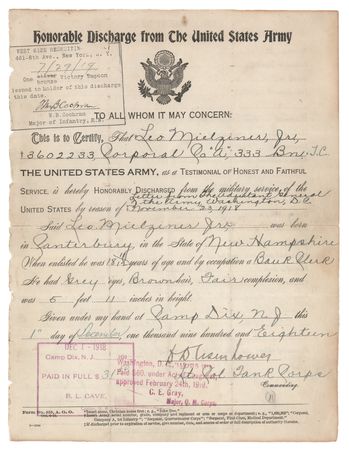 Honorable Discharge from The United States Army
WEST SIDE RECRUITING
461-8th Ave., New York, N. Y.
7/29/19
One bronze Victory Lapel
issued to holder of this discharge
this date.
W.B. Cochran
W.B. Cochran
Major of Infantry,
TO ALL WHOM IT MAY CONCERN:
This is to Certify, That Leo Mielziner, Jr.,
#3602233, Corporal Co "A", 333 Bn. T.C.
THE UNITED STATES ARMY, as a TESTIMONIAL OF HONEST AND FAITHFUL
SERVICE, is hereby HONORABLY DISCHARGED from the military service of the
UNITED STATES by reason of letter from the Adjutant General
of the Army, Washington, D.C.
November 23, 1918
Said Leo Mielziner Jr. was born
in Canterbury, in the State of New Hampshire
When enlisted he was years of age and by occupation a Bank Clerk
He had Grey eyes, Brown hair, Fair complexion, and
was 5 feet 11 inches in height.
Given under my hand at Camp Dix, N.J. this
1st day of December, one thousand nine hundred and Eighteen
D D Eisenhower
Lt. Col. Tank Corps
Commanding
DEC 1 - 1918
CAMP DIX, N. J.
PAID IN FULL $
R. L. CAVE,
Washington, D. C.
Paid $60. under Act of Congress
approved February 24th, 1919.
C. E. Gray,
Major, Q. M. Corps.
Form No. 525, A. G. O.